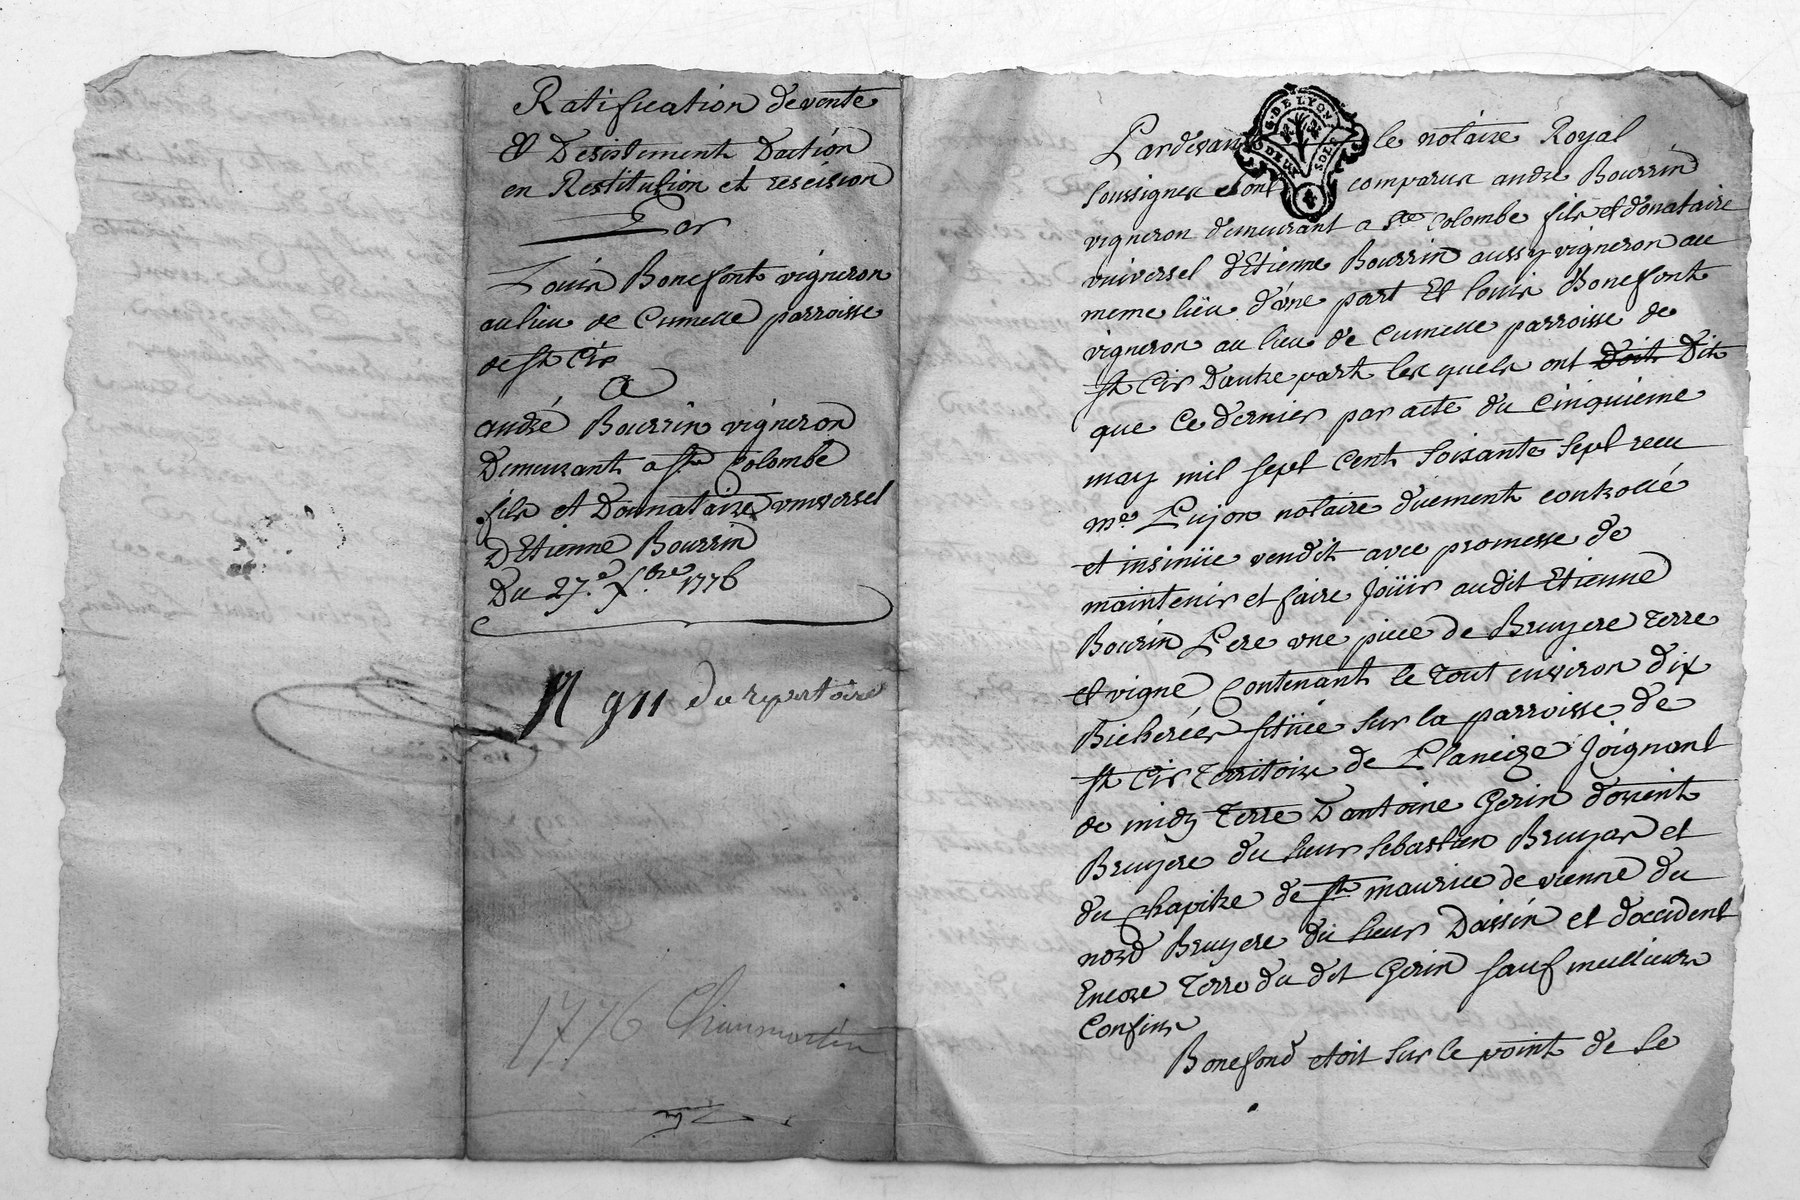 Ratification de vente
Et Desistement Daction
en Restitution et rescision
Par
Louis Bonefont vigneron
au lieu de Cumelle parroisse
de St Cir
A
andré Bourrin vigneron
Demeurant a Ste Colombe
fils et Donnataire vniversel
D'Etienne Bourrin
Du 27.e Xbre 1776
N 911 du repertoire
1776 Chaumartin
G. DE LYON
DEUX SOLS
4
Pardevant le notaire Royal
soussigné et ont comparus andré Bourrin
vigneron demeurant a Ste Colombe fils et donataire
vniversel d'Etienne Bourrin aussy vigneron au
meme liëu d'une part Et louis Bonefont
vigneron au lieu de Cumelle parroisse de
St Cir D'autre part lesquels ont Doit Dit
que Ce dernier par acte du Cinquieme
may mil sept Cent soixante sept recu
me Pujon notaire duement controllé
et insinüe vendit avec promesse de
maintenir et faire Joüir audit Etienne
Bourin Pere vne piece de Bruyere terre
et vigne Contenant le tout environ dix
Bicherées sitüée sur la parroisse de
St Cir Territoire de Planeize Joignant
de midy Terre D'antoine Gerin d'orient
Bruyere du sieur sebastien Bruyas et
du Chapitre de St maurice de vienne du
nord Bruyere du sieur Daissin et d'occident
Encore Terre du dit Gerin sauf meilleurs
Confins
Bonefond etoit sur le point de se